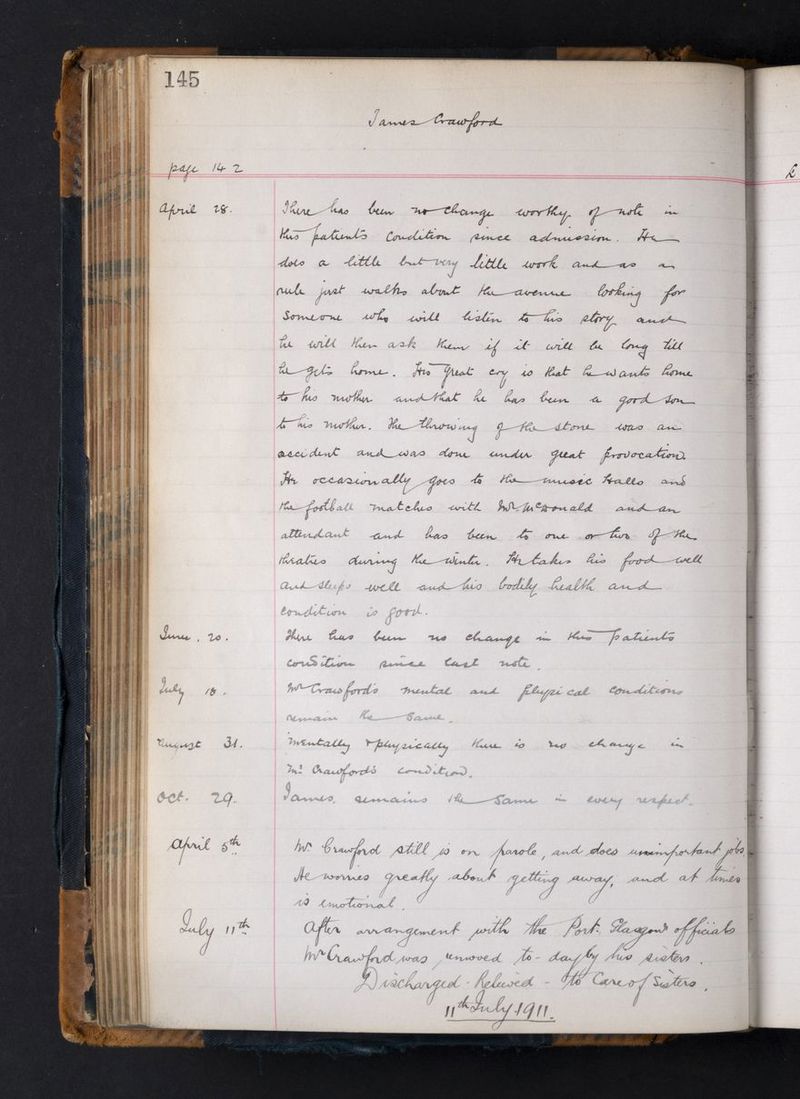 145
James Crawford
page 142
April 28. There has been no change worthy of note in
this patients condition since admission. He
does a little but very little work and as a
rule just walks about the avenue looking for
someone who will listen to his story and
he will then ask them if it will be long till
he gets home. His great cry is that he wants home
to his mother and that he has been a good son
to his mother. The throwing of the stone was an
accident and was done under great provocation.
He occasionally goes to the music Halls and
the football matches with Mr McDonald and an
attendant and has been to one or two of the
theatres during the winter. He takes his food well
and sleeps well and his bodily health and
condition is good.
June. 20. There has been no change in this patients
condition since last note.
July 18. Mr Crawford's mental and physical conditions
remain the same.
August 31. Mentally & physically there is no change in
Mr Crawford's condition.
Oct. 29. James. remains the same in every respect.
April 5th Mr Crawford still is on parole, and does unimportant jobs.
He worries greatly about getting away, and at times
is emotional.
July 11th After arrangement with the Port. Glasgow officials
Mr Crawford was removed to-day by his sisters.
Discharged - Relieved - to Care of Sisters.
11th July 1911.
£